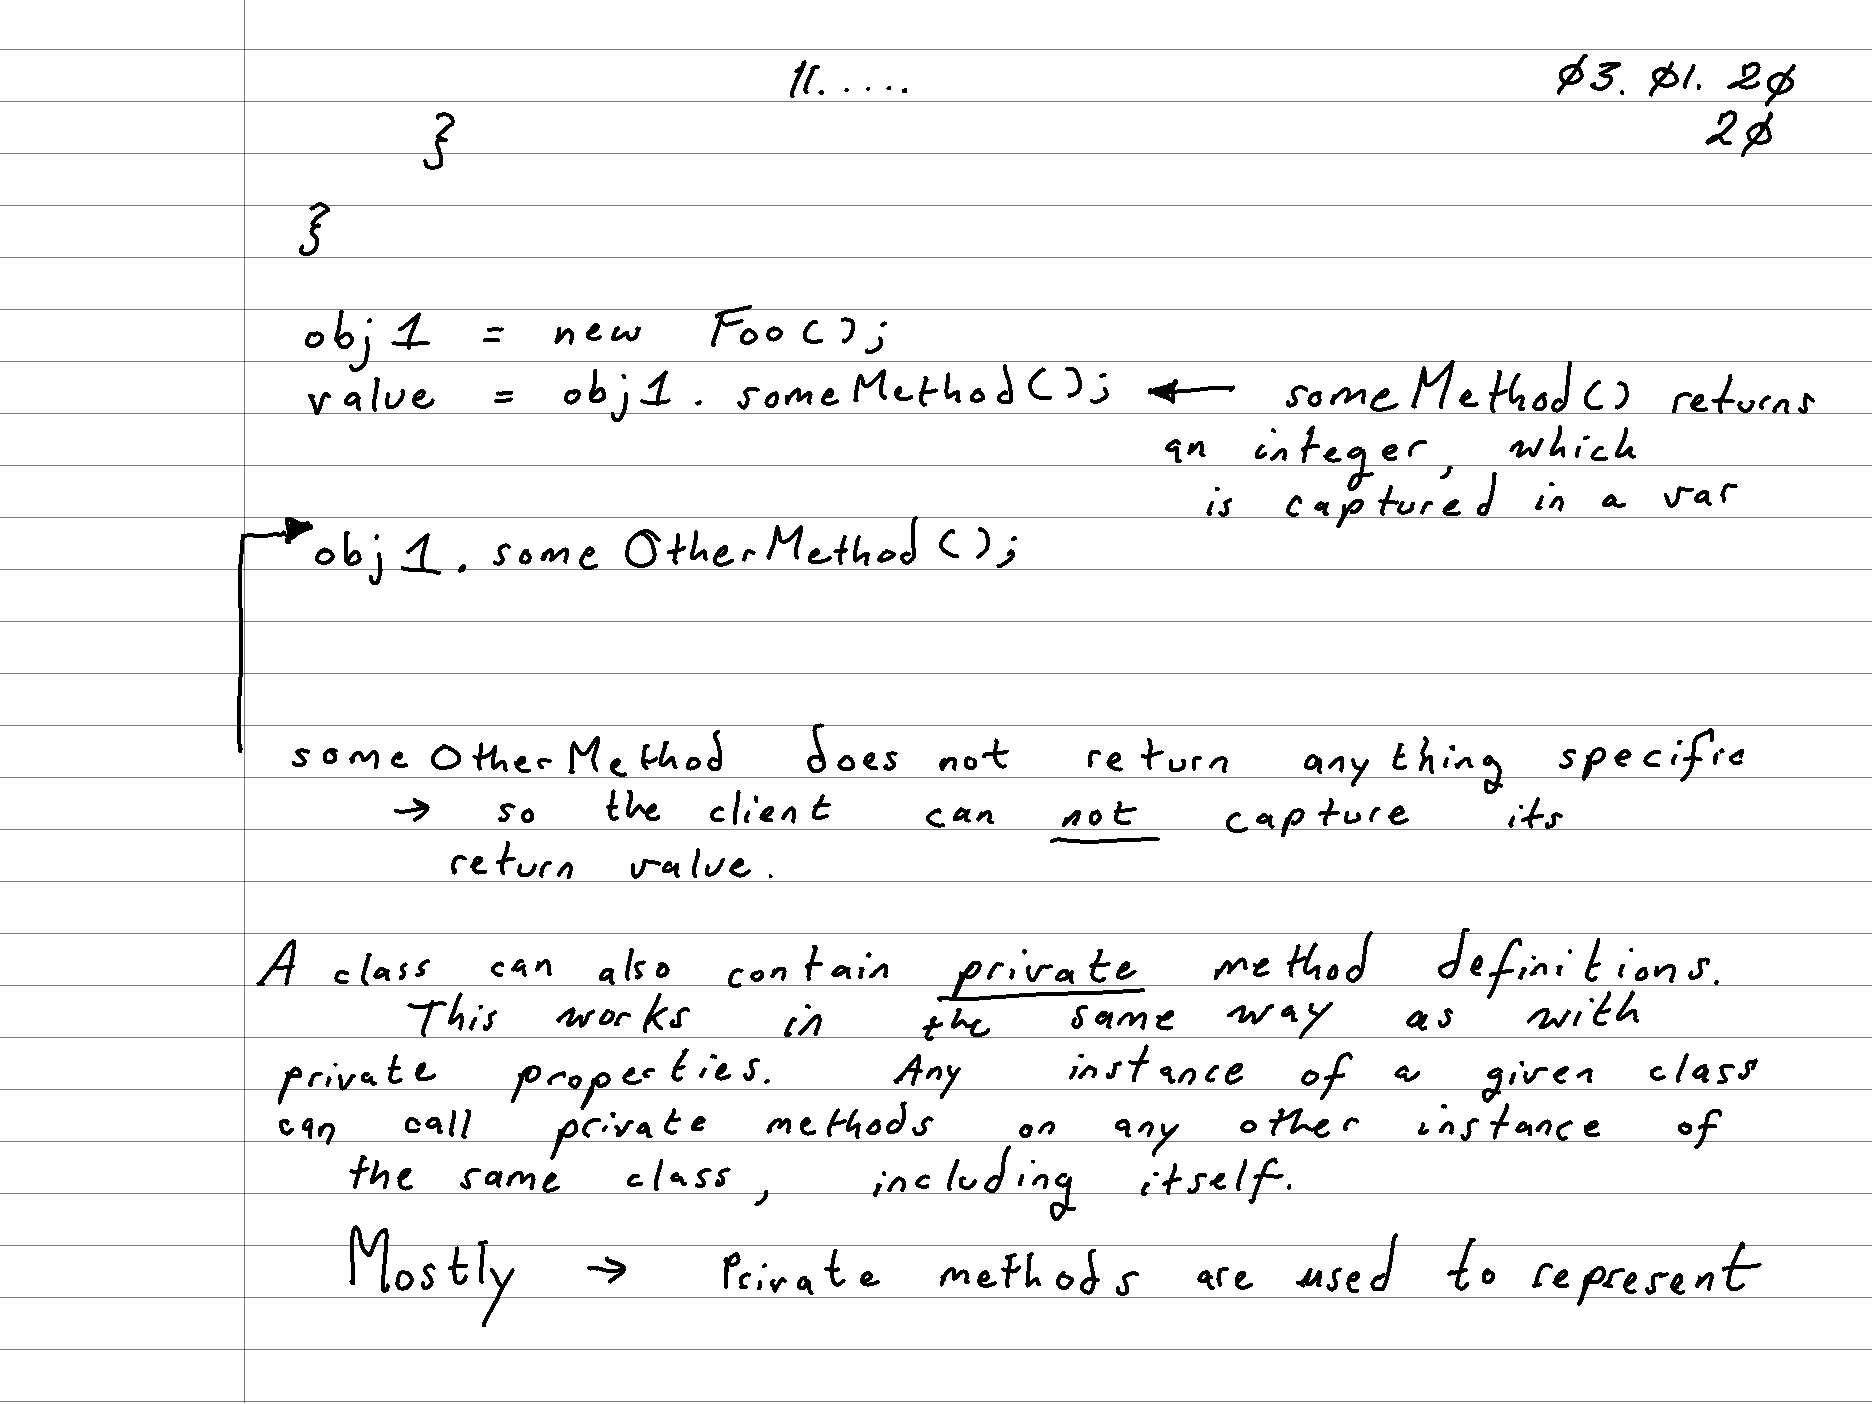 //..... 03.01.20
20
}
}
obj1 = new Foo();
value = obj1.someMethod(); ← someMethod() returns
an integer, which
is captured in a var
obj1.someOtherMethod();
someOtherMethod does not return anything specific
→ so the client can not capture its
return value.
A class can also contain private method definitions.
This works in the same way as with
private properties. Any instance of a given class
can call private methods on any other instance of
the same class, including itself.
Mostly → Private methods are used to represent